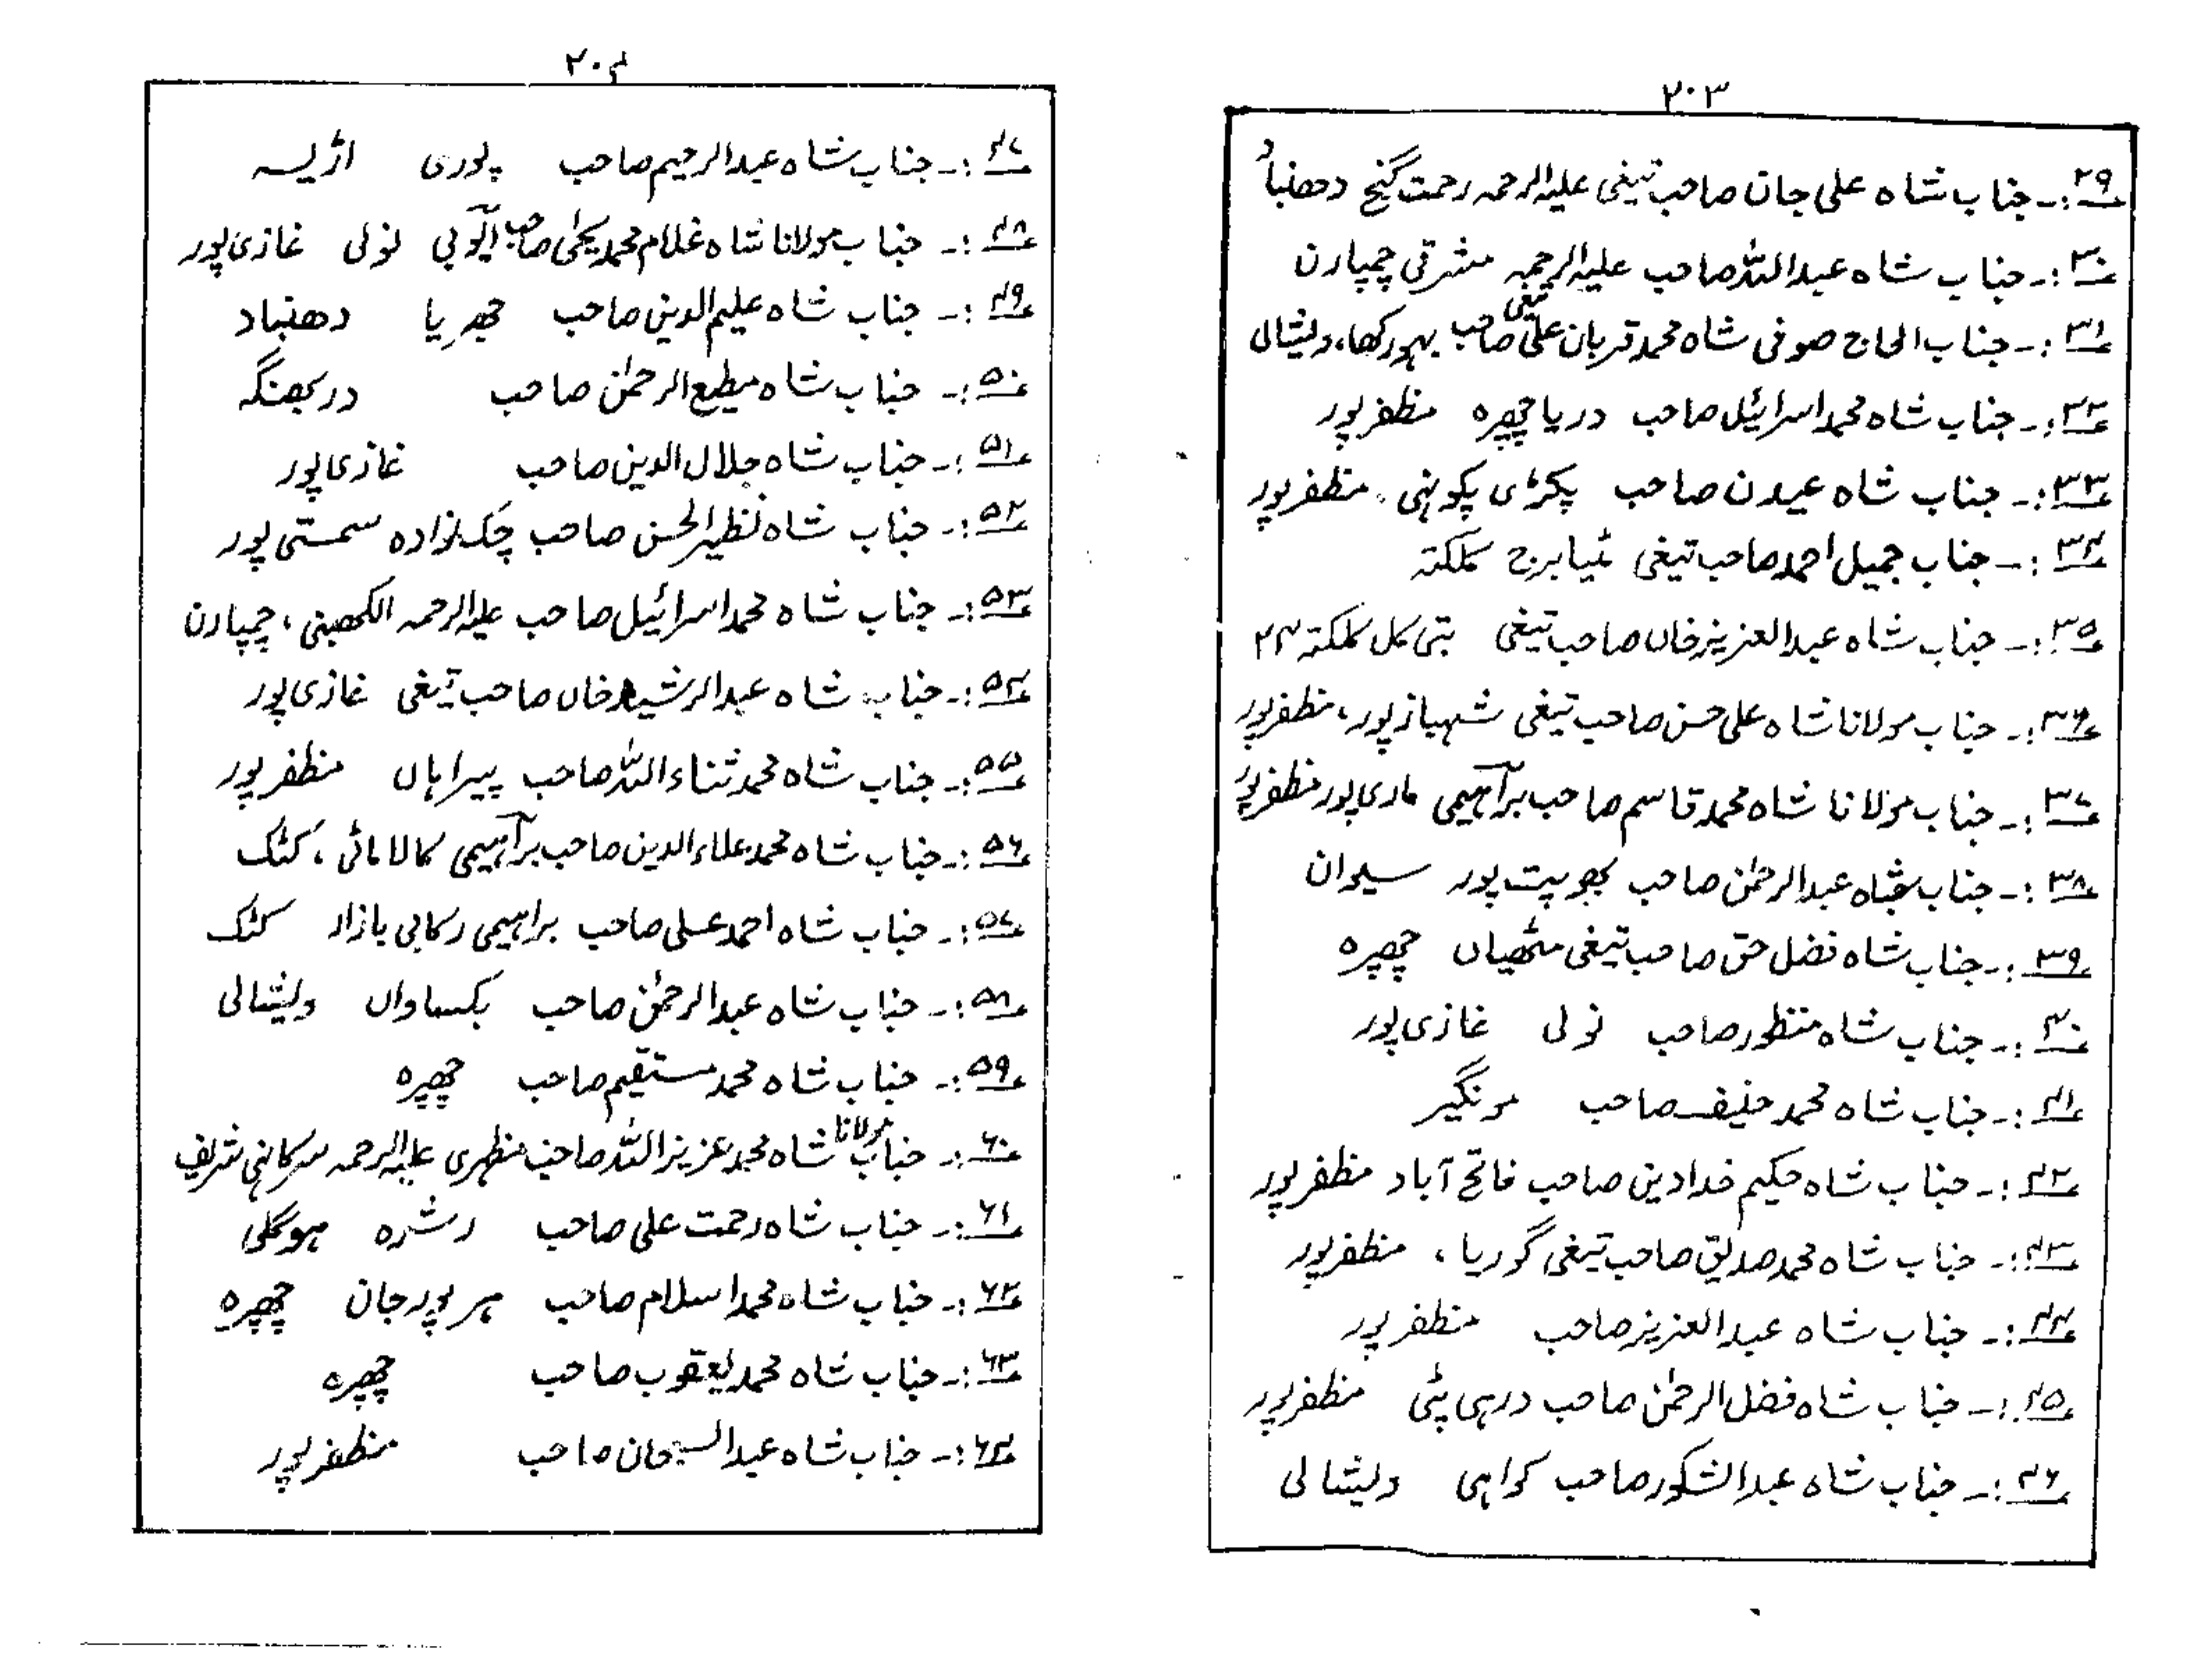 ۲۰۳
۲۹:۔ جناب شاہ علی جان صاحب تیغی علیہ الرحمہ رحمت گنج دھنباد
۳۰:۔ جناب شاہ عبداللہ صاحب علیہ الرحمہ مشرقی چمپارن
۳۱:۔ جناب الحاج صوفی شاہ محمد قربان علی تیغی صاحب بہورکھا، ویشالی
۳۲:۔ جناب شاہ محمد اسرائیل صاحب دریا چھپرہ مظفرپور
۳۳:۔ جناب شاہ عیدن صاحب پکڑی پکوہنی، مظفرپور
۳۴:۔ جناب جمیل احمد صاحب تیغی مٹیا برج کلکتہ
۳۵:۔ جناب شاہ عبدالعزیز خاں صاحب تیغی بتی کل کلکتہ ۲۴
۳۶:۔ جناب مولانا شاہ علی حسن صاحب تیغی شہباز پور، مظفرپور
۳۷:۔ جناب مولانا شاہ محمد قاسم صاحب براہیمی ماری پور مظفرپور
۳۸:۔ جناب شاہ عبدالرحمٰن صاحب بھوپت پور سیوان
۳۹:۔ جناب شاہ فضل حق صاحب تیغی مٹھیاں چھپرہ
۴۰:۔ جناب شاہ منظور صاحب نولی غازی پور
۴۱:۔ جناب شاہ محمد حنیف صاحب مونگیر
۴۲:۔ جناب شاہ حکیم خدادین صاحب فاتح آباد مظفرپور
۴۳:۔ جناب شاہ محمد صدیق صاحب تیغی گوریا، مظفرپور
۴۴:۔ جناب شاہ عبدالعزیز صاحب مظفرپور
۴۵:۔ جناب شاہ فضل الرحمٰن صاحب درہی پٹی مظفرپور
۴۶:۔ جناب شاہ عبدالشکور صاحب کواہی ویشالی
۲۰۴
۴۷:۔ جناب شاہ عبدالرحیم صاحب پوری اڑیسہ
۴۸:۔ جناب مولانا شاہ غلام محمد یحیٰی صاحب ایوبی نولی غازی پور
۴۹:۔ جناب شاہ علیم الدین صاحب جھریا دھنباد
۵۰:۔ جناب شاہ مطیع الرحمٰن صاحب دربھنگہ
۵۱:۔ جناب شاہ جلال الدین صاحب غازی پور
۵۲:۔ جناب شاہ نظیر الحسن صاحب چک نوادہ سمستی پور
۵۳:۔ جناب شاہ محمد اسرائیل صاحب علیہ الرحمہ الکھینی، چمپارن
۵۴:۔ جناب شاہ عبدالرشید خاں صاحب تیغی غازی پور
۵۵:۔ جناب شاہ محمد ثناء اللہ صاحب پیراہاں مظفرپور
۵۶:۔ جناب شاہ محمد علاء الدین صاحب براہیمی کالا مائی، کٹک
۵۷:۔ جناب شاہ احمد علی صاحب براہیمی رکابی بازار کٹک
۵۸:۔ جناب شاہ عبدالرحمٰن صاحب بکساواں ویشالی
۵۹:۔ جناب شاہ محمد مستقیم صاحب چھپرہ
۶۰:۔ جناب مولانا شاہ محمد عزیز اللہ صاحب مظہری علیہ الرحمہ سرکانہی شریف
۶۱:۔ جناب شاہ رحمت علی صاحب رشڑہ ہوگلی
۶۲:۔ جناب شاہ محمد اسلام صاحب ہر پور جان چھپرہ
۶۳:۔ جناب شاہ محمد یعقوب صاحب چھپرہ
۶۴:۔ جناب شاہ عبدالسبحان صاحب مظفرپور